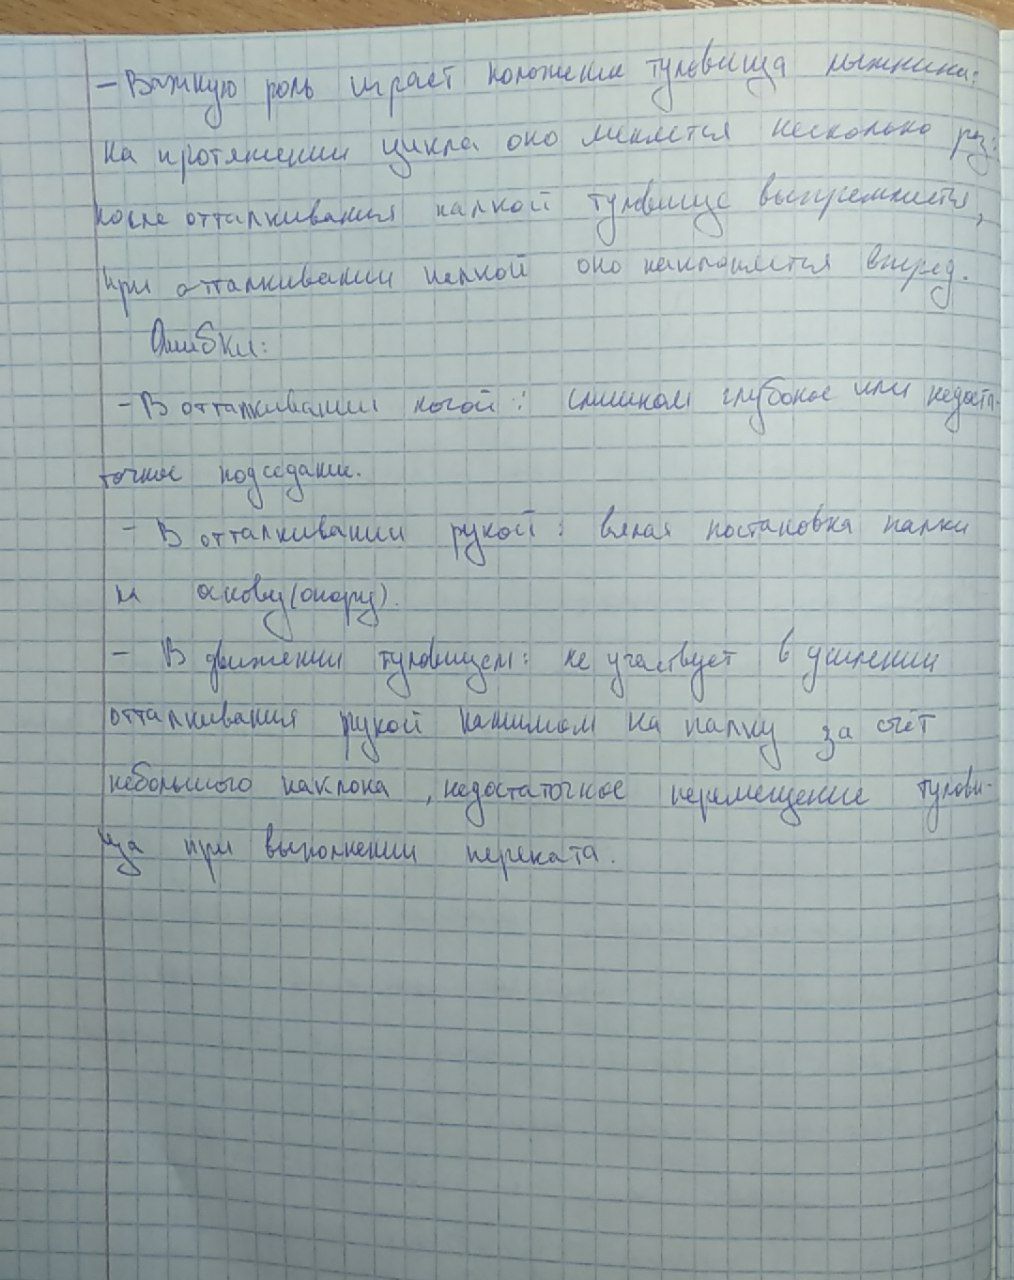 - Важную роль играет положение туловища лыжника:
на протяжении цикла оно меняется несколько рз:
после отталкивания палкой туловище выпрямляется,
при отталкивании палкой оно наклоняется вперед.
Ошибки:
- В отталкивании ногой: слишком глубокое или недоста-
точное подседание.
- В отталкивании рукой: вялая постановка палки
(опору).
- В движении туловищем: не участвует в усилении
отталкивания рукой нажимом на палку за счёт
небольшого наклона, недостаточное перемещение тулови-
ща при выполнении переката.